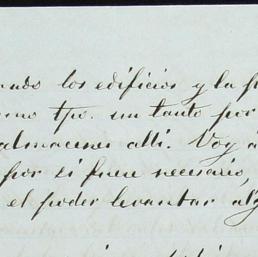 los edificios y la
tpo. un tanto por
almacenes alli. Voy á
por si fuere necesario,
el poder levantar